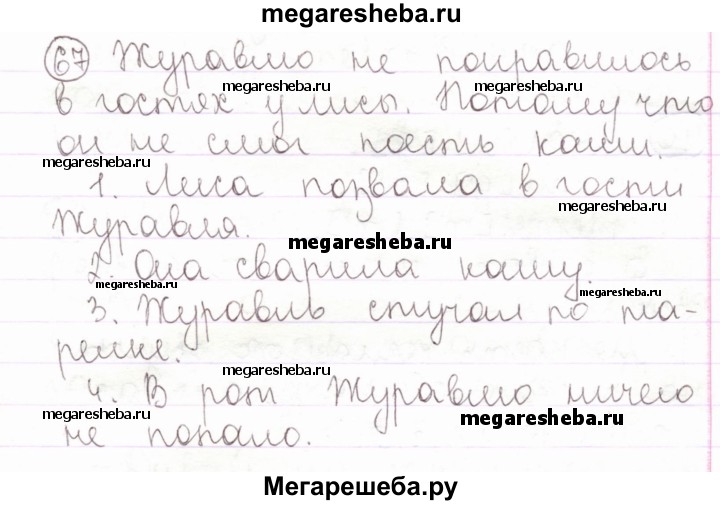 megaresheba.ru
67 Журавлю не понравилось
megaresheba.ru megaresheba.ru
в гостях у лисы. Потому что
он не смог поесть каши.
megaresheba.ru
1. Лиса позвала в гости
megaresheba.ru
Журавля.
megaresheba.ru
2. Она сварила кашу.
megaresheba.ru megaresheba.ru
3. Журавль стучал по та-
релке.
megaresheba.ru
4. В рот Журавлю ничего
megaresheba.ru megaresheba.ru
не попало.
Мегарешеба.ру